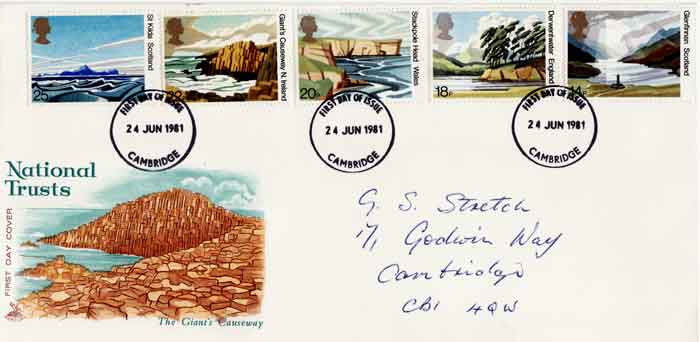 St Kilda Scotland
25
Giant's Causeway N. Ireland
Stackpole Head Wales
20p
Derwentwater England
18P
Glenfinnan Scotland
14P
FIRST DAY OF ISSUE
24 JUN 1981
CAMBRIDGE
FIRST DAY OF ISSUE
24 JUN 1981
CAMBRIDGE
FIRST DAY OF ISSUE
24 JUN 1981
CAMBRIDGE
National
Trusts
FIRST DAY COVER
The Giant's Causeway
G. S. Stretch
Godwin Way
Cambridge
CB1 4QW